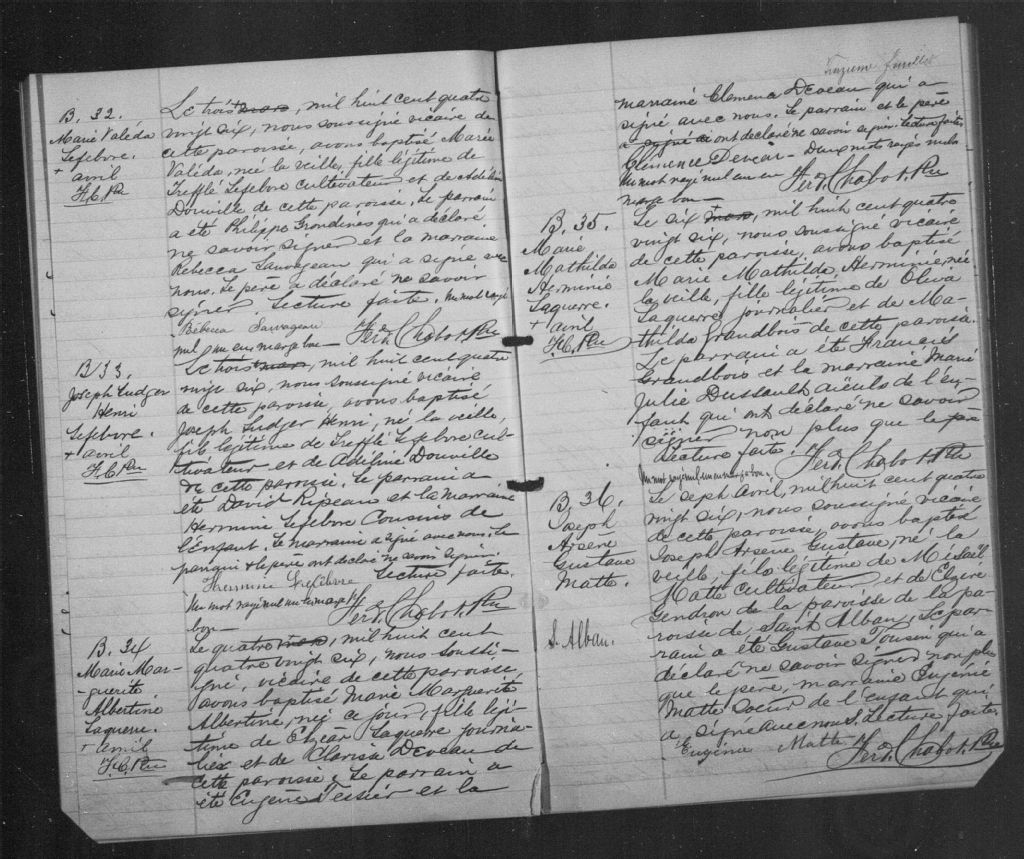 B. 32.
Marie Valéda
Lefebvre.
+ avril
F.C. Ptre
Le trois mars, mil huit cent quatre
vingt six, nous soussigné vicaire de
cette paroisse, avons baptisé Marie
Valéda, née la veille, fille légitime de
Trefflé Lefebvre cultivateur et de
Douville de cette paroisse. Le parrain
a été Philippe Grondines qui a déclaré
ne savoir signer et la marraine
Rebecca Sauvageau qui a signé avec
nous. Le père a déclaré ne savoir
signer Lecture faite. Un mot rayé
Rebecca Sauvageau
nul un en marge bon — Ferd. Chabot Ptre
B 33.
Joseph Ludger
Henri
Lefebvre.
+ avril
F.C. Ptre
Le trois mars, mil huit cent quatre
vingt six, nous soussigné vicaire
de cette paroisse, avons baptisé
Joseph Ludger Henri, né la veille,
fils légitime de Trefflé Lefebvre cul-
tivateur et de Adéline Douville
de cette paroisse. Le parrain a
été David Ripeau et la marraine
Hermine Lefebvre Cousins de
l'enfant. La marraine a signé avec nous. Le
parrain & le père ont déclaré ne savoir signer.
Hermine Lefebvre Lecture faite.
Un mot rayé nul un en marge
bon — Ferd. Chabot. Ptre
B. 34
Marie Mar-
guerite
Albertine
Laquerre.
+ avril
F.C. Ptre
Le quatre mars, mil huit cent
quatre vingt six, nous soussi-
gné, vicaire de cette paroisse,
avons baptisé Marie Marguerite
Albertine, née ce jour, fille légi-
time de Elzear Laquerre journa-
lier et de Clarisse Deveau de
cette paroisse. Le parrain a
été Eugène Tessier et la
marraine Clemence Deveau qui a
signé avec nous. Le parrain et le père
ont déclaré ne savoir signer. Lecture faite.
Clémence Deveau — Deux mots rayés nuls
Un mot rayé nul un en Ferd. Chabot. Ptre
marge bon —
B. 35.
Marie
Mathilde
Herminie
Laquerre.
+ avril
F.C. Ptre
Le six mars, mil huit cent quatre
vingt six, nous soussigné vicaire
de cette paroisse, avons baptisé
Marie Mathilde Herminie, née
la veille, fille légitime de Oliva
Laquerre journalier et de Ma-
thilde Grandbois de cette paroisse.
Le parrain a été Francis
Grandbois et la marraine Marie
Julie Dussault aïeuls de l'en-
fant qui ont déclaré ne savoir
signer non plus que le père
Lecture faite. Ferd. Chabot Ptre
Un mot rayé nul un en marge bon.
B. 36.
Joseph
Arsène
Gustave
Matte.
S. Alban.
Le sept Avril, mil huit cent quatre
vingt six, nous soussigné vicaire
de cette paroisse, avons baptisé
Joseph Arsène Gustave, né la
veille, fils légitime de Misaël
Matte cultivateur et de Claire
Gendron de la paroisse de la pa-
roisse de Saint Alban, Le par-
rain a été Gustave Tousin qui a
déclaré ne savoir signer non plus
que le père, marraine Eugénie
Matte soeur de l'enfant qui
a signé avec nous. Lecture faite.
Eugénie Matte Ferd. Chabot. Ptre